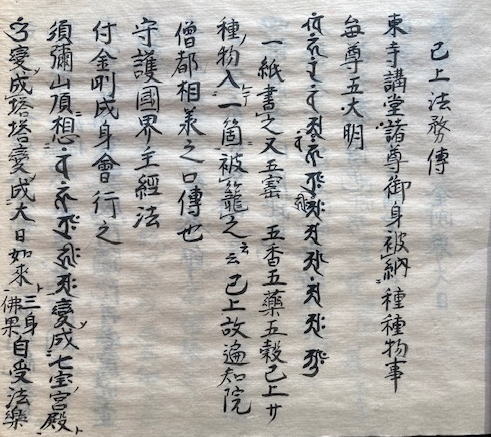 已上法務傳
東寺講堂諸尊御身被納種種物事
每尊五大明
一紙書之又五寶 五香五藥五穀已上廿
種物入一箇被籠之云云 已上故遍知院
僧都相承之口傳也
守護國界主經法
付金剛成身會行之
須彌山頂想 變成七宝宮殿
變成塔塔變成大日如來三身佛果自受法樂